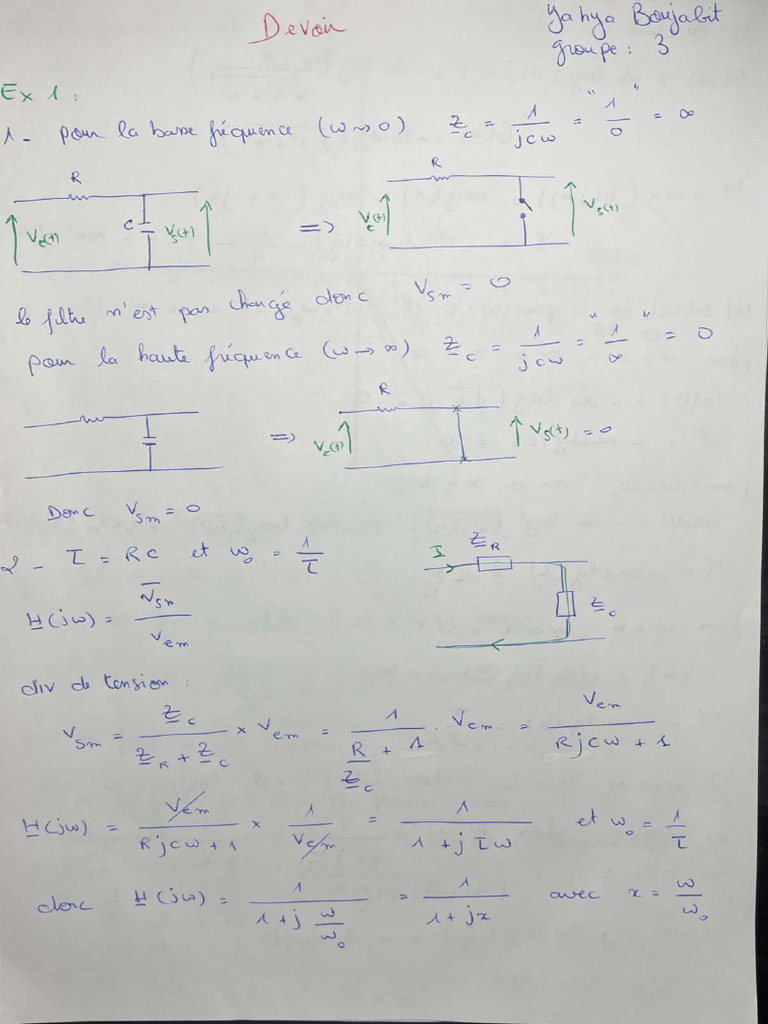 Devoir
Yahya Boujabit
groupe : 3
Ex 1 :
1 - pour la basse fréquence (w → 0) Z_c = 1/(jcw) = "1/0" = ∞
R
C
Ve(t)
Vs(t)
=>
R
Ve(t)
Vs(t)
le filtre n'est pas changé donc V_sm = 0
pour la haute fréquence (w → ∞) Z_c = 1/(jcw) = "1/∞" = 0
=>
R
Ve(t)
Vs(t) = 0
Donc V_sm = 0
2 - τ = RC et w_0 = 1/τ
I
Z_R
Z_c
H(jw) = V_sm / V_em
div de tension :
V_sm = Z_c / (Z_R + Z_c) × V_em = 1 / (R/Z_c + 1) . V_em = V_em / (RjCw + 1)
H(jw) = V_em / (RjCw + 1) × 1 / V_em = 1 / (1 + jτw) et w_0 = 1/τ
donc H(jw) = 1 / (1 + j w/w_0) = 1 / (1 + jx) avec x = w/w_0